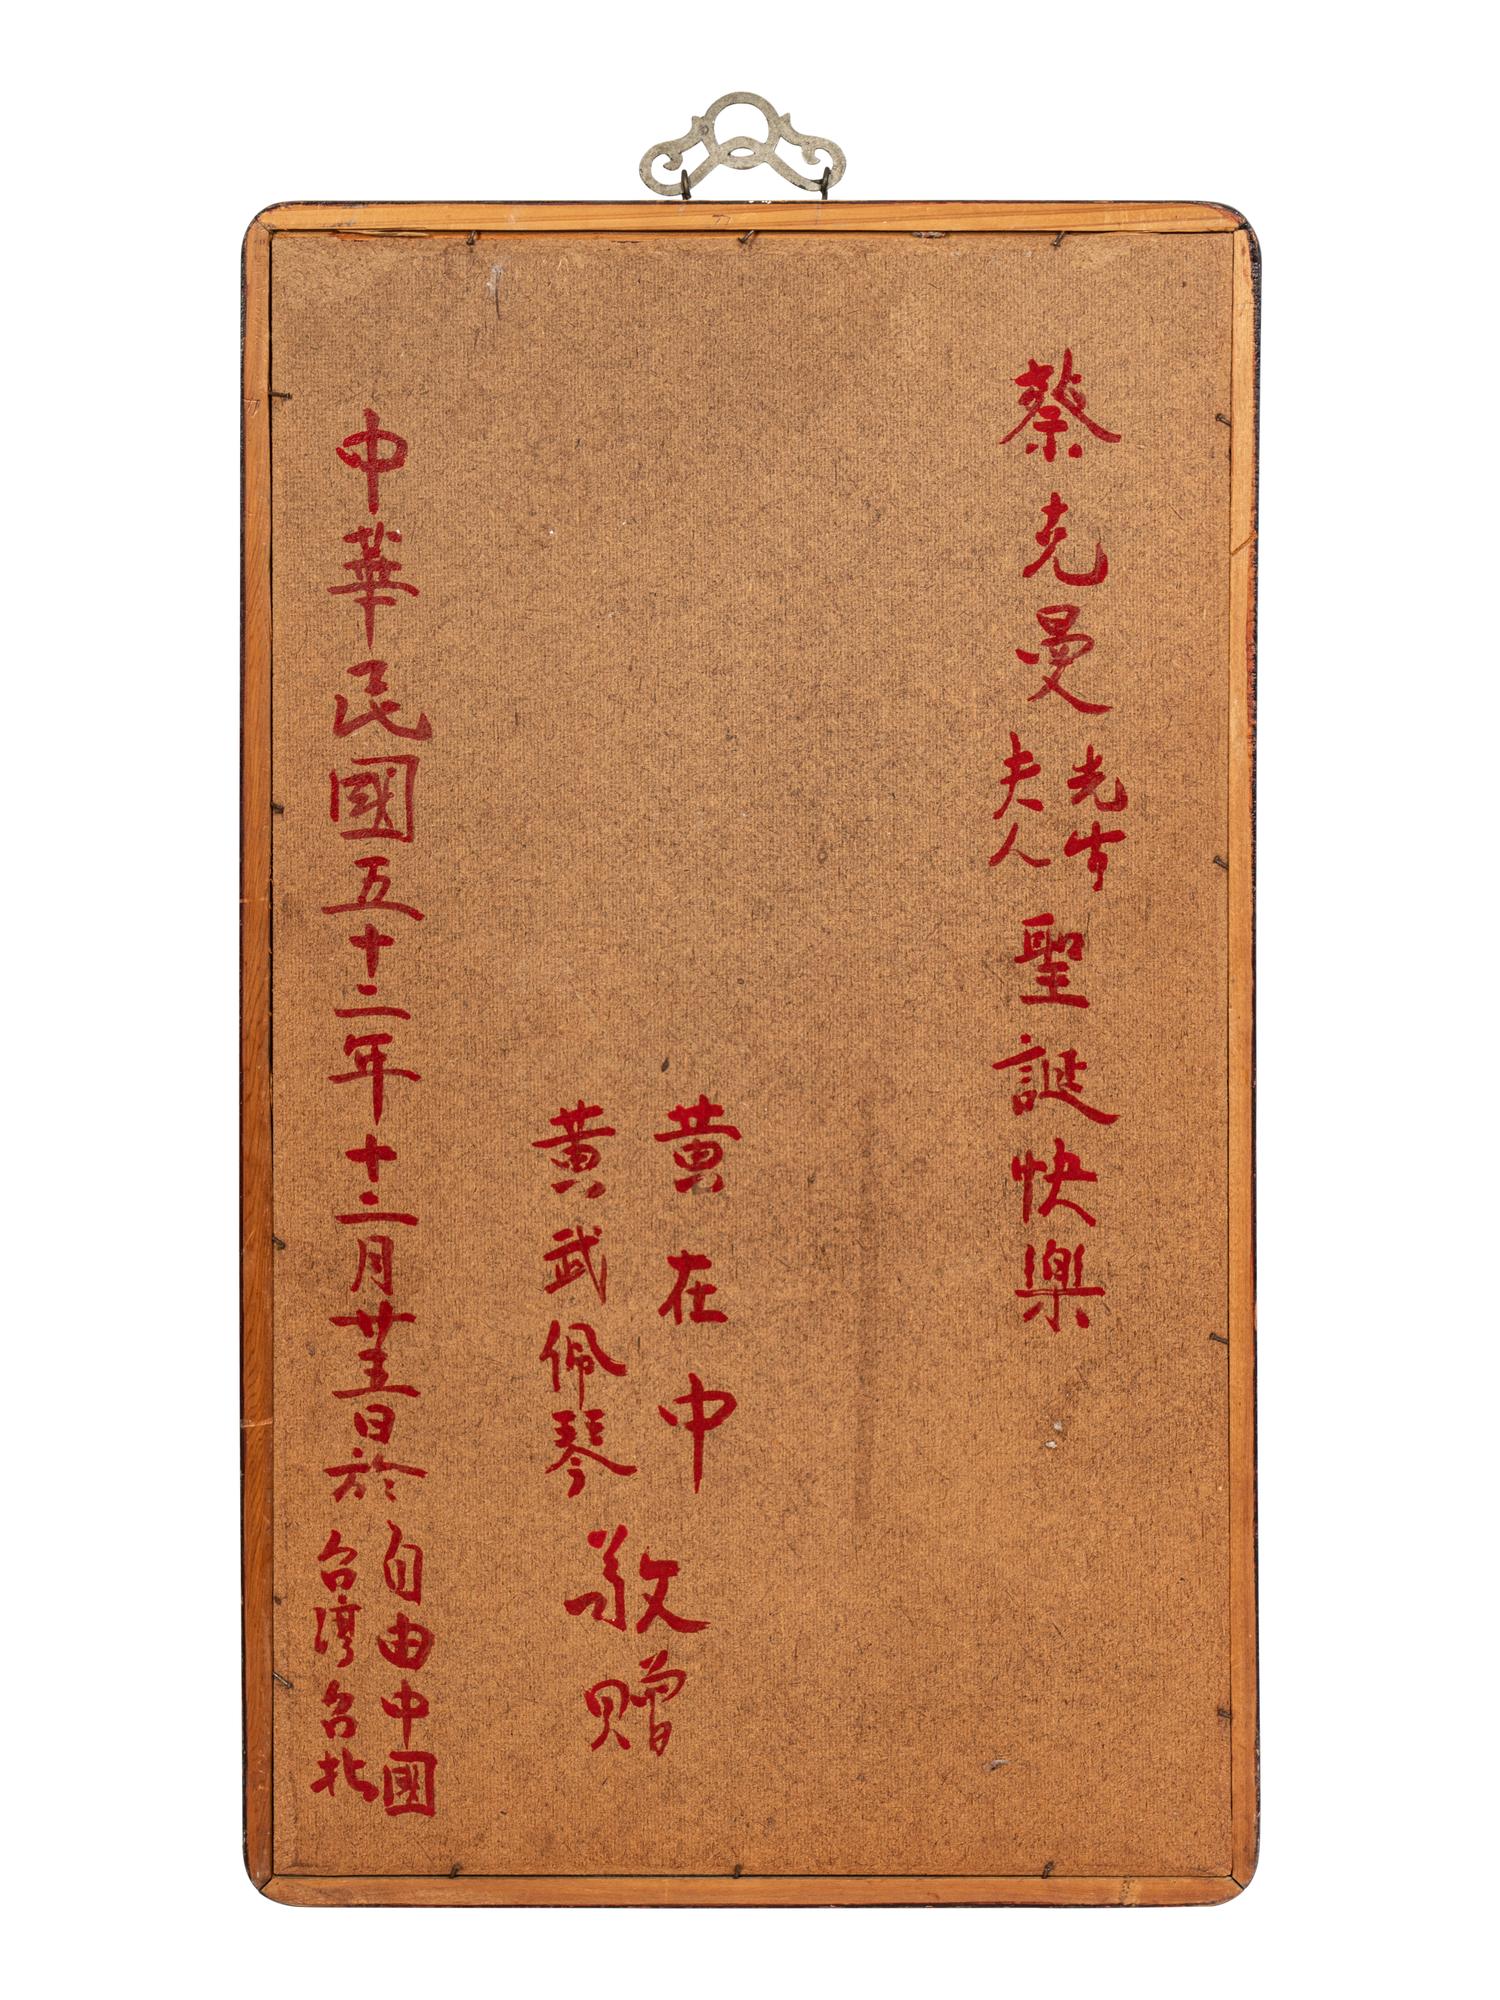 蔡克曼先生夫人聖誕快樂
黃在中
黃武佩琴
敬贈
中華民國五十二年十二月廿五日於
自由中國
台灣台北